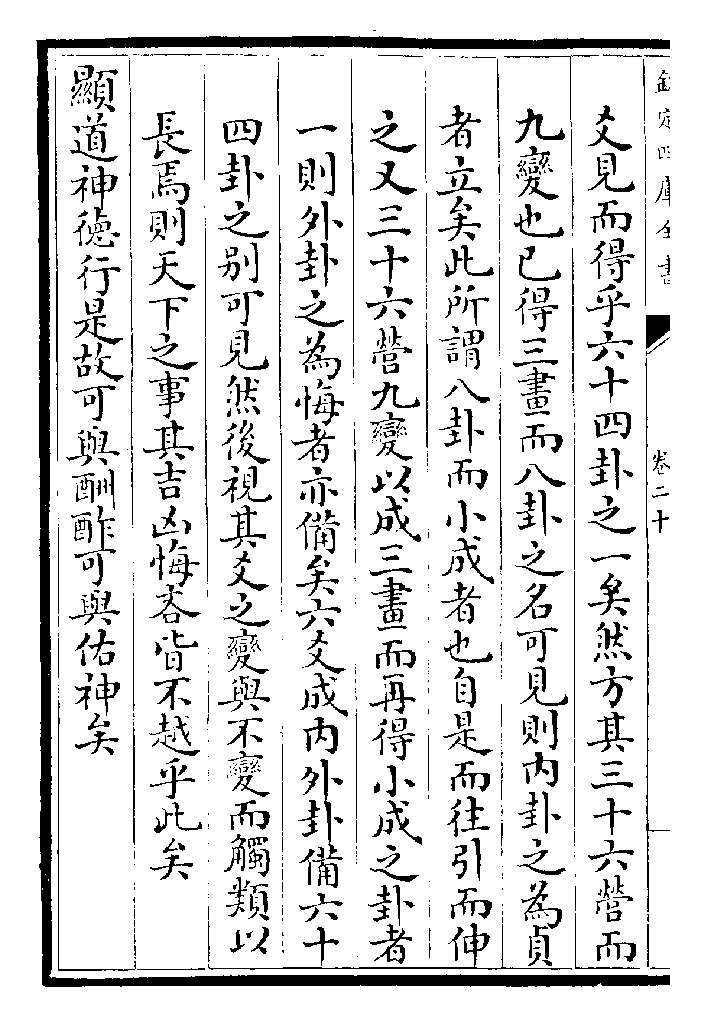 欽定四庫全書
卷二十
爻見而得乎六十四卦之一矣然方其三十六營而
九變也已得三畫而八卦之名可見則内卦之為貞
者立矣此所謂八卦而小成者也自是而往引而伸
之又三十六營九變以成三畫而再得小成之卦者
一則外卦之為悔者亦備矣六爻成内外卦備六十
四卦之别可見然後視其爻之變與不變而觸類以
長焉則天下之事其吉凶悔吝皆不越乎此矣
顯道神德行是故可與酬酢可與佑神矣